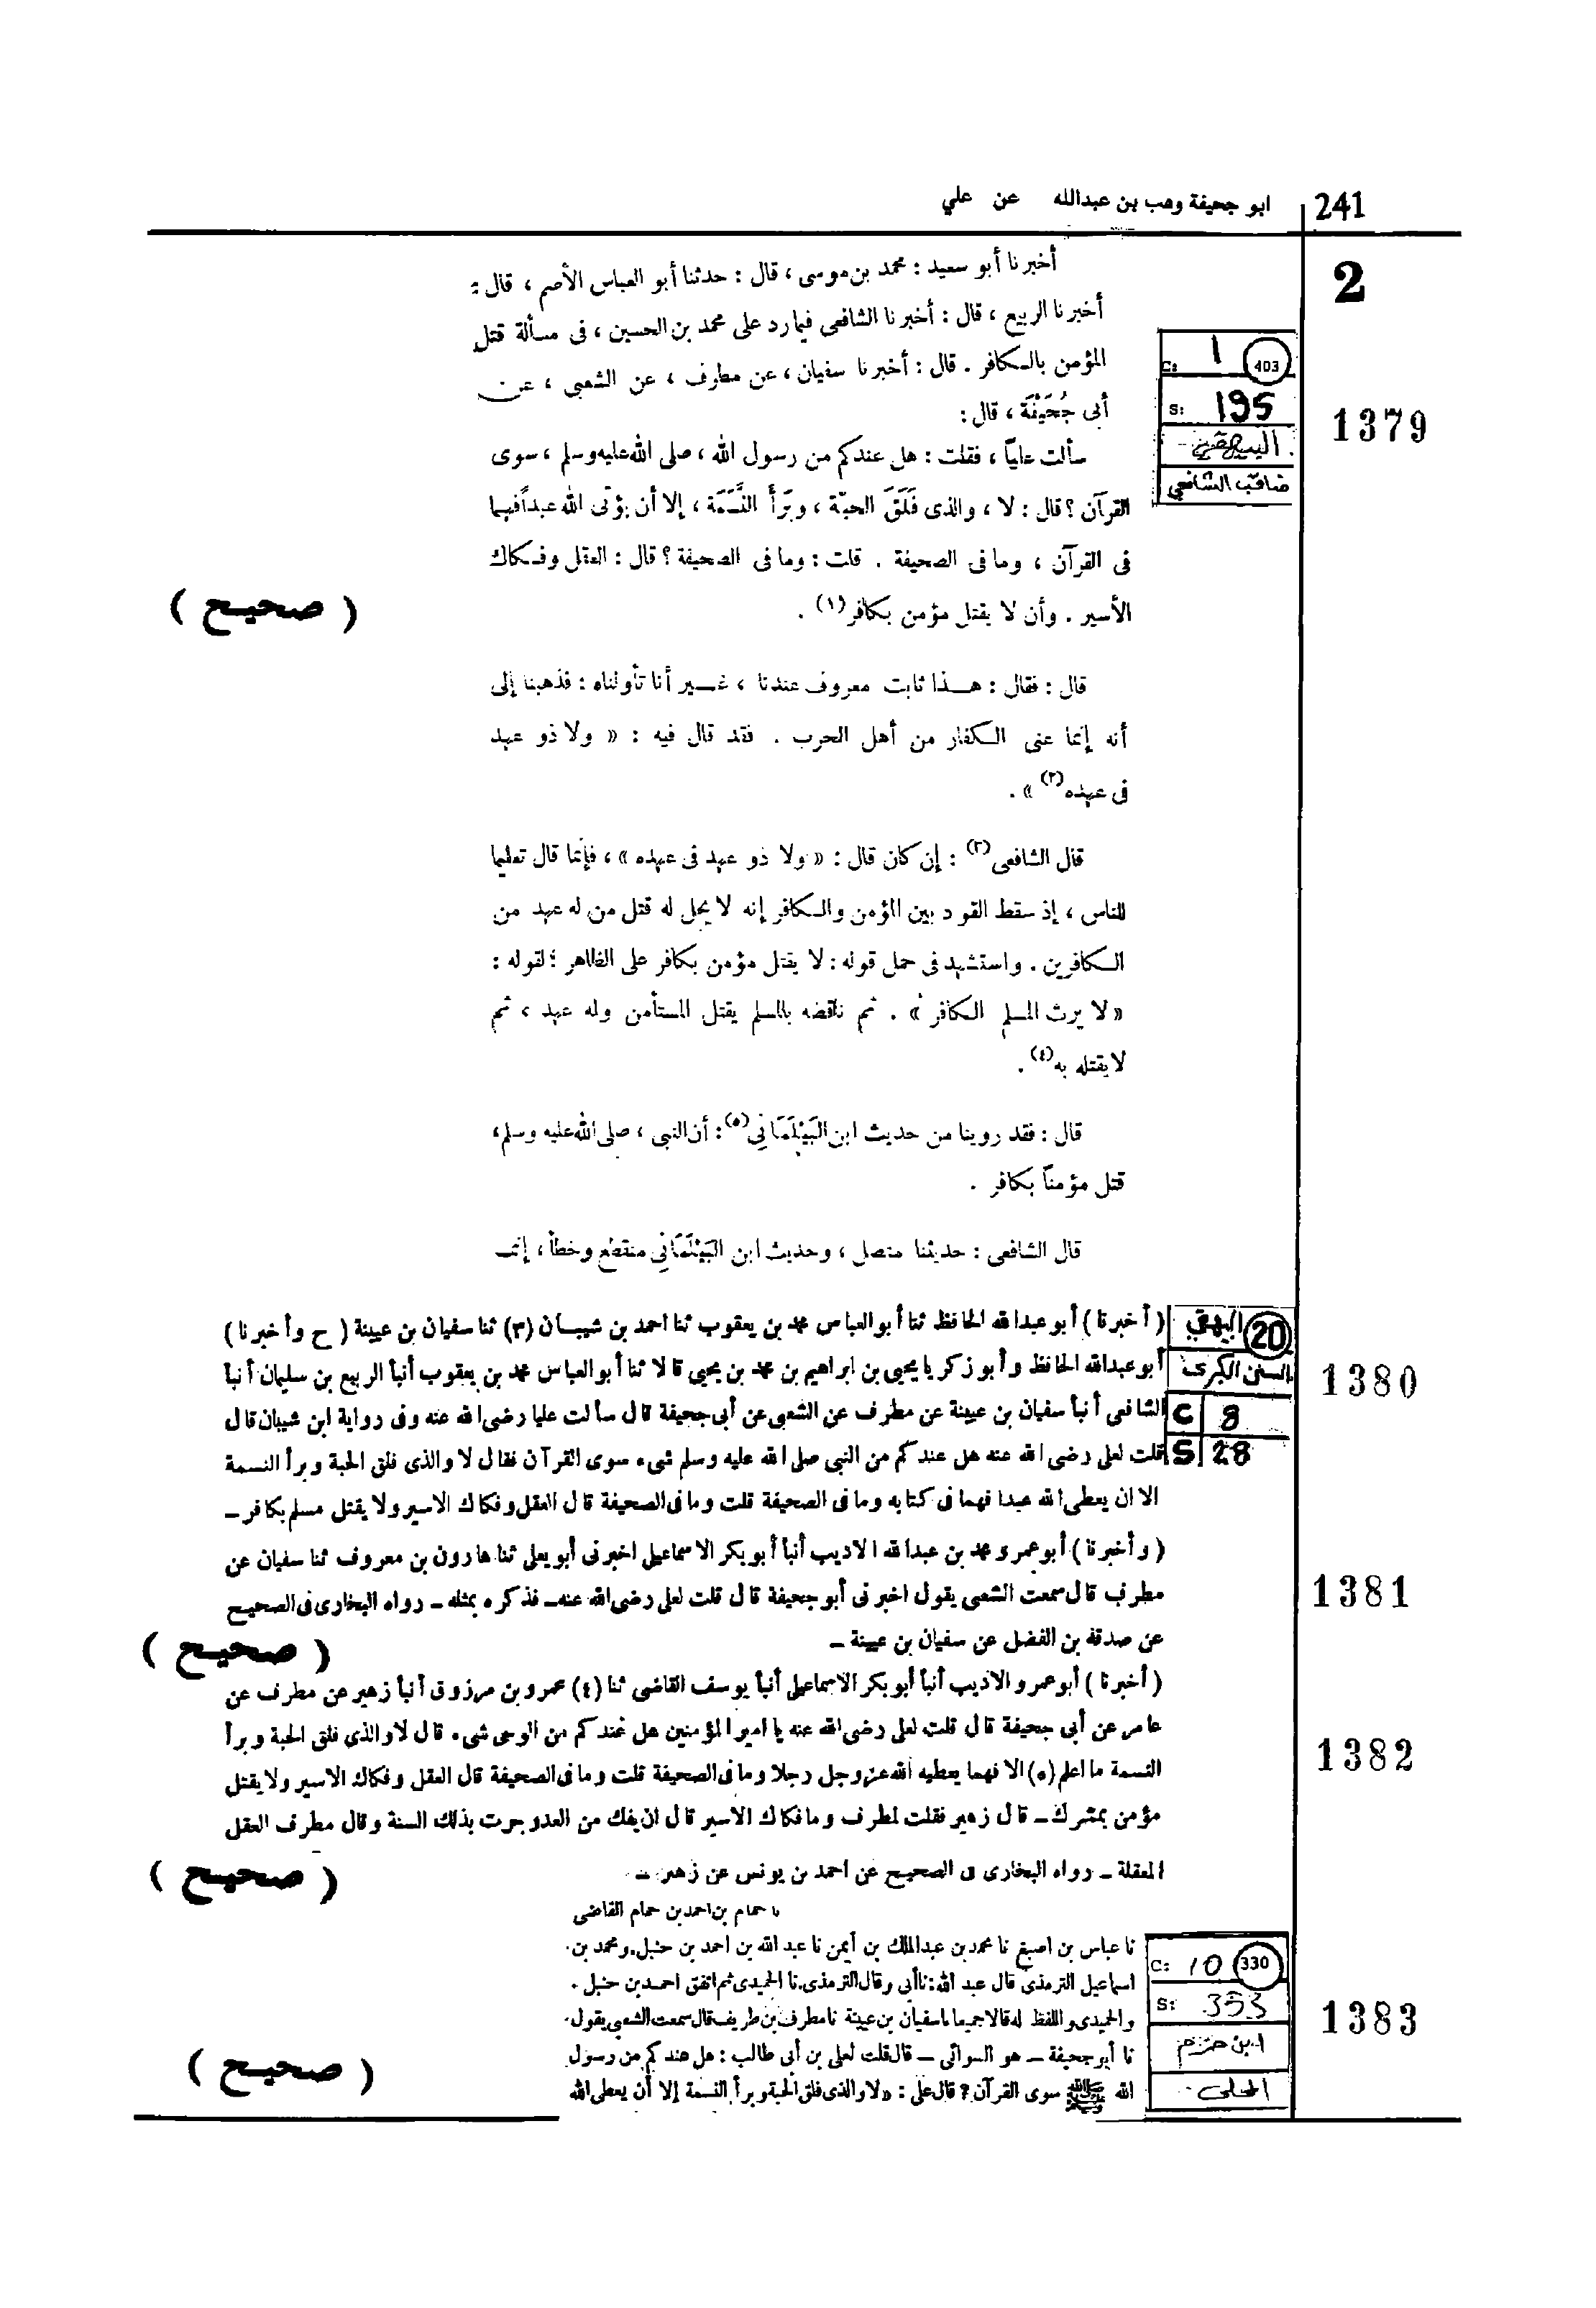 241
ابو جحيفة وهب بن عبدالله عن علي
2
أخبرنا أبو سعيد : محمد بن موسى ، قال : حدثنا أبو العباس الأصم ، قال :
أخبرنا الربيع ، قال : أخبرنا الشافعى فيما رد على محمد بن الحسين ، فى مسألة قتل
المؤمن بالكافر . قال : أخبرنا سفيان ، عن مطرف ، عن الشعبى ، عن
أبى جُحَيْفَة ، قال :
C: 1 403
S: 195
البيهقي
مناقب الشافعي
1379
سألت علياً ، فقلت : هل عندكم من رسول الله ، صلى الله عليه وسلم ، سوى
القرآن ؟ قال : لا ، والذى فَلَقَ الحبّة ، وبَرَأَ النَّسَمَة ، إلا أن يؤتى الله عبداً فهما
فى القرآن ، وما فى الصحيفة . قلت : وما فى الصحيفة ؟ قال : العقل وفكاك
الأسير . وأن لا يقتل مؤمن بكافر (١) .
( صحيح )
قال : فقال : هذا ثابت معروف عندنا ، غير أنا تأولناه : فذهبنا إلى
أنه إنما عنى الكفار من أهل الحرب . فقد قال فيه : « ولا ذو عهد
فى عهده (٢) » .
قال الشافعى (٣) : إن كان قال : « ولا ذو عهد فى عهده » ، فإنما قال تعليما
للناس ، إذ سقط القود بين المؤمن والكافر إنه لا يحل له قتل من له عهد من
الكافرين . واستشهد فى حمل قوله : لا يقتل مؤمن بكافر على الظاهر ؛ لقوله :
« لا يرث المسلم الكافر » . ثم ناقضه بالمسلم يقتل المستأمن وله عهد ، ثم
لا يقتله به (٤) .
قال : فقد روينا من حديث ابن البَيْلَمَانِي (٥) : أن النبى ، صلى الله عليه وسلم ،
قتل مؤمناً بكافر .
قال الشافعى : حديثنا متصل ، وحديث ابن البَيْلَمَانِي منقطع وخطأ ، إنما
البيهقي 20
السنن الكبرى
C 8
S 28
1380
( أخبرنا ) أبو عبدالله الحافظ ثنا أبو العباس محمد بن يعقوب ثنا احمد بن شيبان (٣) ثنا سفيان بن عيينة ( ح وأخبرنا )
أبو عبدالله الحافظ وأبو زكريا يحيى بن ابراهيم بن محمد بن يحيى قالا ثنا أبو العباس محمد بن يعقوب أنبأ الربيع بن سليمان أنبأ
الشافعى أنبأ سفيان بن عيينة عن مطرف عن الشعبى عن أبى جحيفة قال سألت عليا رضى الله عنه وفى رواية ابن شيبان قال
قلت لعلى رضى الله عنه هل عندكم من النبى صلى الله عليه وسلم شىء سوى القرآن فقال لا والذى فلق الحبة وبرأ النسمة
الا ان يعطى الله عبدا فهما فى كتابه وما فى الصحيفة قلت وما فى الصحيفة قال العقل وفكاك الاسير ولا يقتل مسلم بكافر ـ
1381
( وأخبرنا ) أبو عمرو محمد بن عبدالله الاديب أنبأ أبو بكر الاسماعيلى اخبرنى أبو يعلى ثنا هارون بن معروف ثنا سفيان عن
مطرف قال سمعت الشعبى يقول اخبرنى أبو جحيفة قال قلت لعلى رضى الله عنه ـ فذكره بمثله ـ رواه البخارى فى الصحيح
عن صدقة بن الفضل عن سفيان بن عيينة ـ
( صحيح )
1382
( أخبرنا ) أبو عمرو الاديب أنبأ أبو بكر الاسماعيلى أنبأ يوسف القاضى ثنا (٤) عمرو بن مرزوق أنبأ زهير عن مطرف عن
عامر عن أبى جحيفة قال قلت لعلى رضى الله عنه يا امير المؤمنين هل عندكم من الوحى شىء قال لا والذى فلق الحبة وبرأ
النسمة ما اعلم (٥) الا فهما يعطيه الله عز وجل رجلا وما فى الصحيفة قلت وما فى الصحيفة قال العقل وفكاك الاسير ولا يقتل
مؤمن بمشرك ـ قال زهير فقلت لمطرف وما فكاك الاسير قال ان يفك من العدو جرت بذلك السنة وقال مطرف العقل
المعقلة ـ رواه البخارى فى الصحيح عن احمد بن يونس عن زهير ـ
( صحيح )
نا حمام بن احمد بن حمام القاضى
نا عباس بن اصبغ نا محمد بن عبدالملك بن أيمن نا عبد الله بن احمد بن حنبل. ومحمد بن
اسماعيل الترمذى قال عبد الله: نا أبى وقال الترمذى. نا الحميدى ثم اتفق احمد بن حنبل .
والحميدى واللفظ له قالا جميعا نا سفيان بن عيينة نا مطرف بن طريف قال سمعت الشعبى يقول
نا أبو جحيفة ـ هو السوائى ـ قال قلت لعلى بن أبى طالب : هل عندكم من رسول
الله ﷺ سوى القرآن ? قال على : «لا والذى فلق الحبة وبرأ النسمة إلا أن يعطى الله
C: 10 330
S: 353
ابن حزم
المحلى
1383
( صحيح )